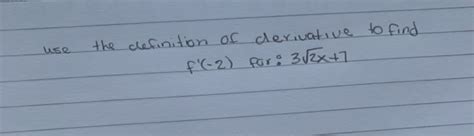 use the definition of derivative to find
f'(-2) for: 3√2x+7